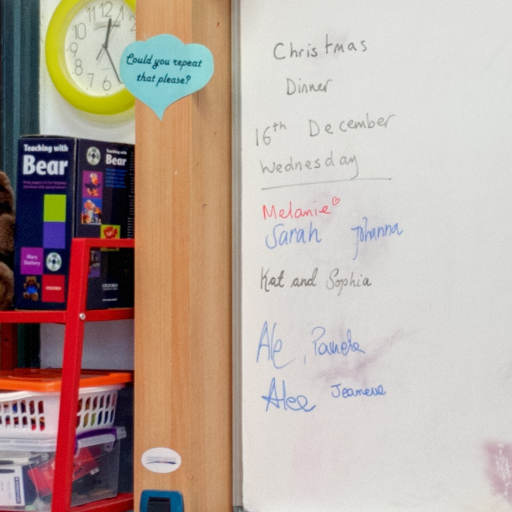 Could you repeat
that please?
Teaching with
Bear
Teaching with
Bear
Christmas
Dinner
16th December
Wednesday
Melanie
Sarah Johanna
Kat and Sophia
Ale, Pamela